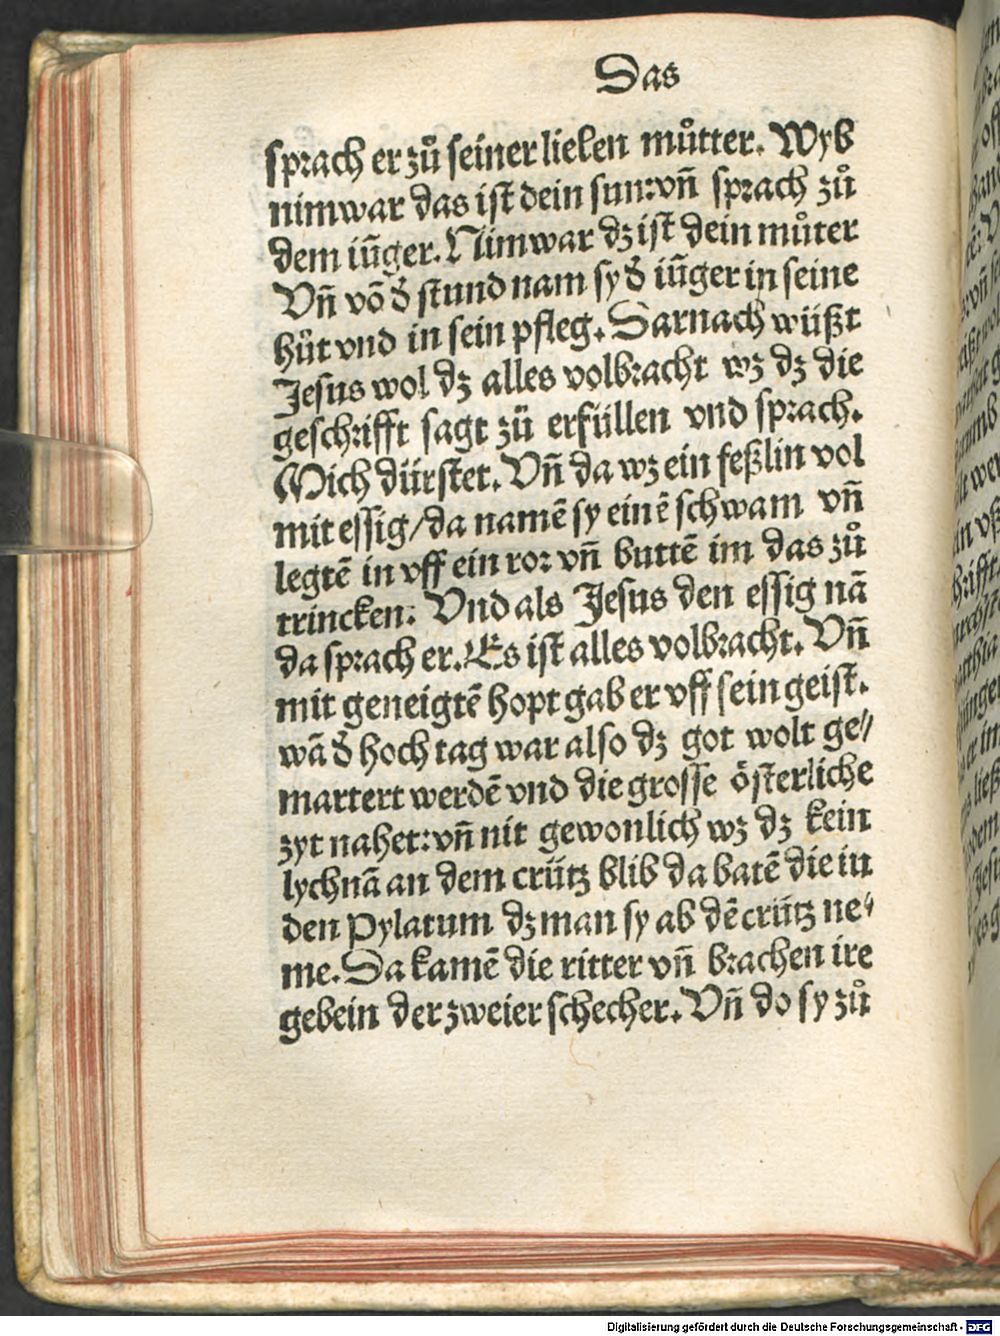 Das
sprach er zů seiner lieben můtter. Wyb
nimwar das ist dein sun: vñ sprach zů
dem iũger. Nimwar dz ist dein můter
Vñ võ d̄ stund nam sy d̄ iũger in seine
hůt vnd in sein pfleg. Darnach wüßt
Jesus wol dz alles volbracht wz dz die
geschrifft sagt zů erfüllen vnd sprach.
Mich dürstet. Vñ da wz ein feßlin vol
mit essig/da namẽ sy einẽ schwam vñ
legtẽ in vff ein ror vñ buttẽ im das zů
trincken. Vnd als Jesus den essig nã
da sprach er. Es ist alles volbracht. Vñ
mit geneigtẽ hopt gab er vff sein geist.
wã d̄ hoch tag war also dz got wolt ge⸗
martert werdẽ vnd die grosse österliche
zyt nahet: vñ nit gewonlich wz dz kein
lychnã an dem crütz blib da batẽ die iu
den Pylatum dz man sy ab dẽ crütz ne⸗
me. Da kamẽ die ritter vñ brachen ire
gebein der zweier schecher. Vñ do sy zů
Digitalisierung gefördert durch die Deutsche Forschungsgemeinschaft - DFG